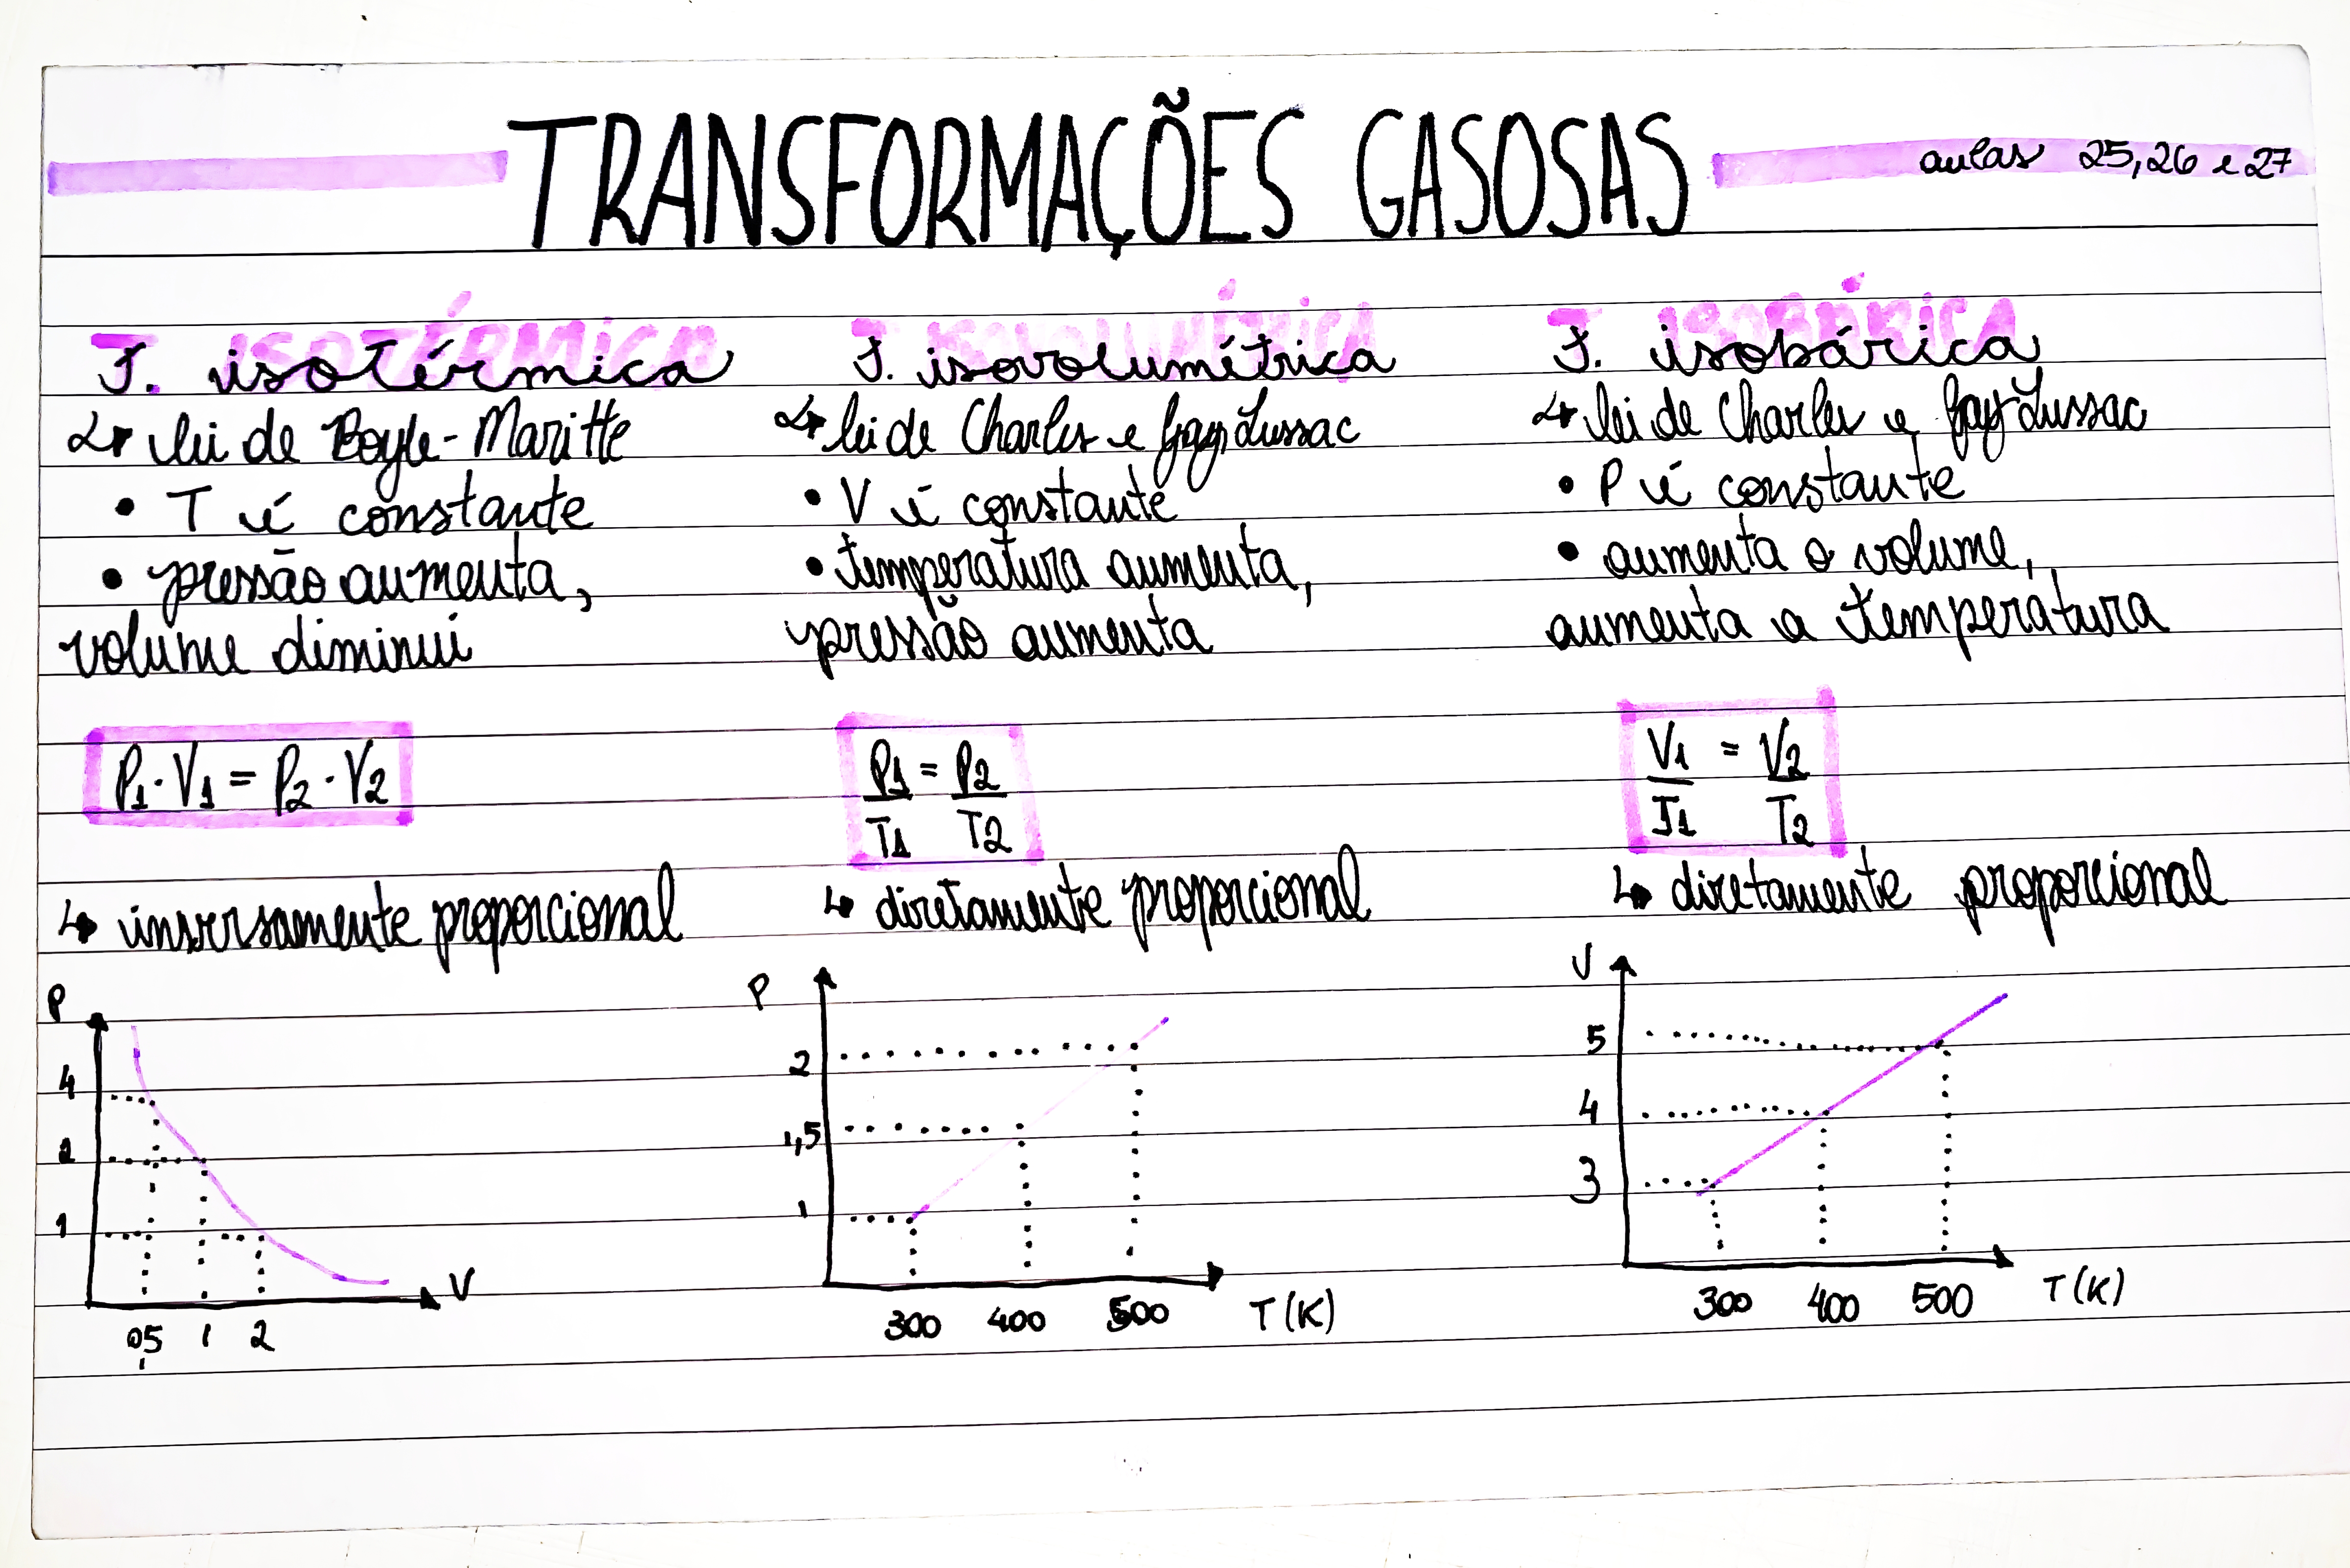 TRANSFORMAÇÕES GASOSAS
aulas 25,26 e 27
T. isotérmica
↳ lei de Boyle-Maritte
• T é constante
• pressão aumenta,
volume diminui
P1 · V1 = P2 · V2
↳ inversamente proporcional
P
4
2
1
0,5 1 2
V
T. isovolumétrica
↳ lei de Charles e Gay Lussac
• V é constante
• temperatura aumenta,
pressão aumenta
P1 = P2
T1 T2
↳ diretamente proporcional
P
2
1,5
1
300 400 500 T(K)
T. isobárica
↳ lei de Charles e Gay Lussac
• P é constante
• aumenta o volume,
aumenta a temperatura
V1 = V2
T1 T2
↳ diretamente proporcional
V
5
4
3
300 400 500 T(K)